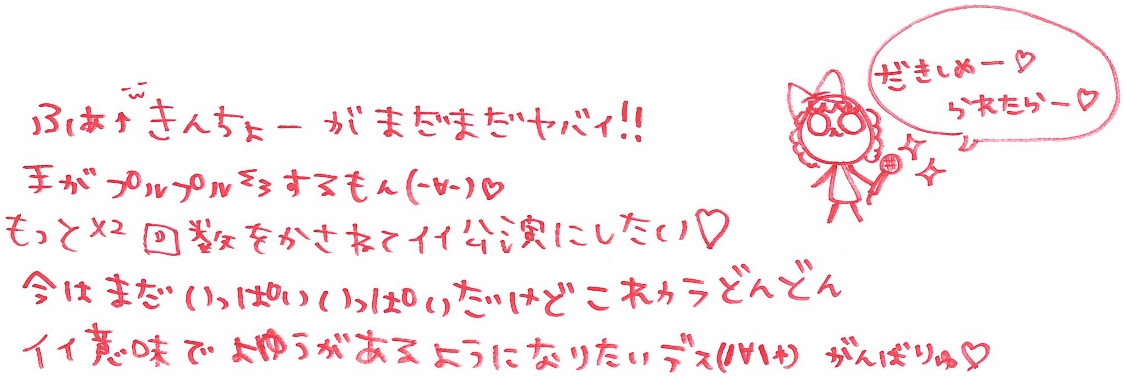 だきしめー♡
られたらー♡
ふぁぁ↑きんちょーがまだまだヤバイ!!
手がプルプルするもん(-∀-)♡
もっと×2 回数をかさねてイイ公演にしたい♡
今はまだいっぱいいっぱいだけどこれからどんどん
イイ意味でよゆうがあるようになりたいデス(/∀\*) がんばりゅ♡